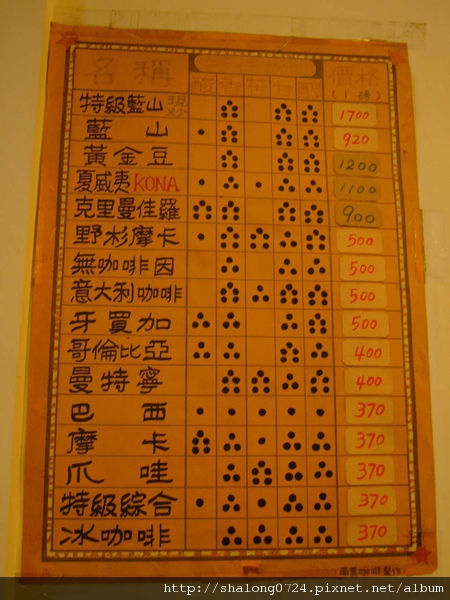 名稱 酸 香 苦 甘 醇 價格
(1磅)
特級藍山 現炒 1700
藍山 920
黃金豆 1200
夏威夷KONA 1100
克里曼佳羅 900
野杉摩卡 500
無咖啡因 500
意大利咖啡 500
牙買加 500
哥倫比亞 400
曼特寧 400
巴西 370
摩卡 370
爪哇 370
特級綜合 370
冰咖啡 370
http://shalong0724.pixnet.net/album